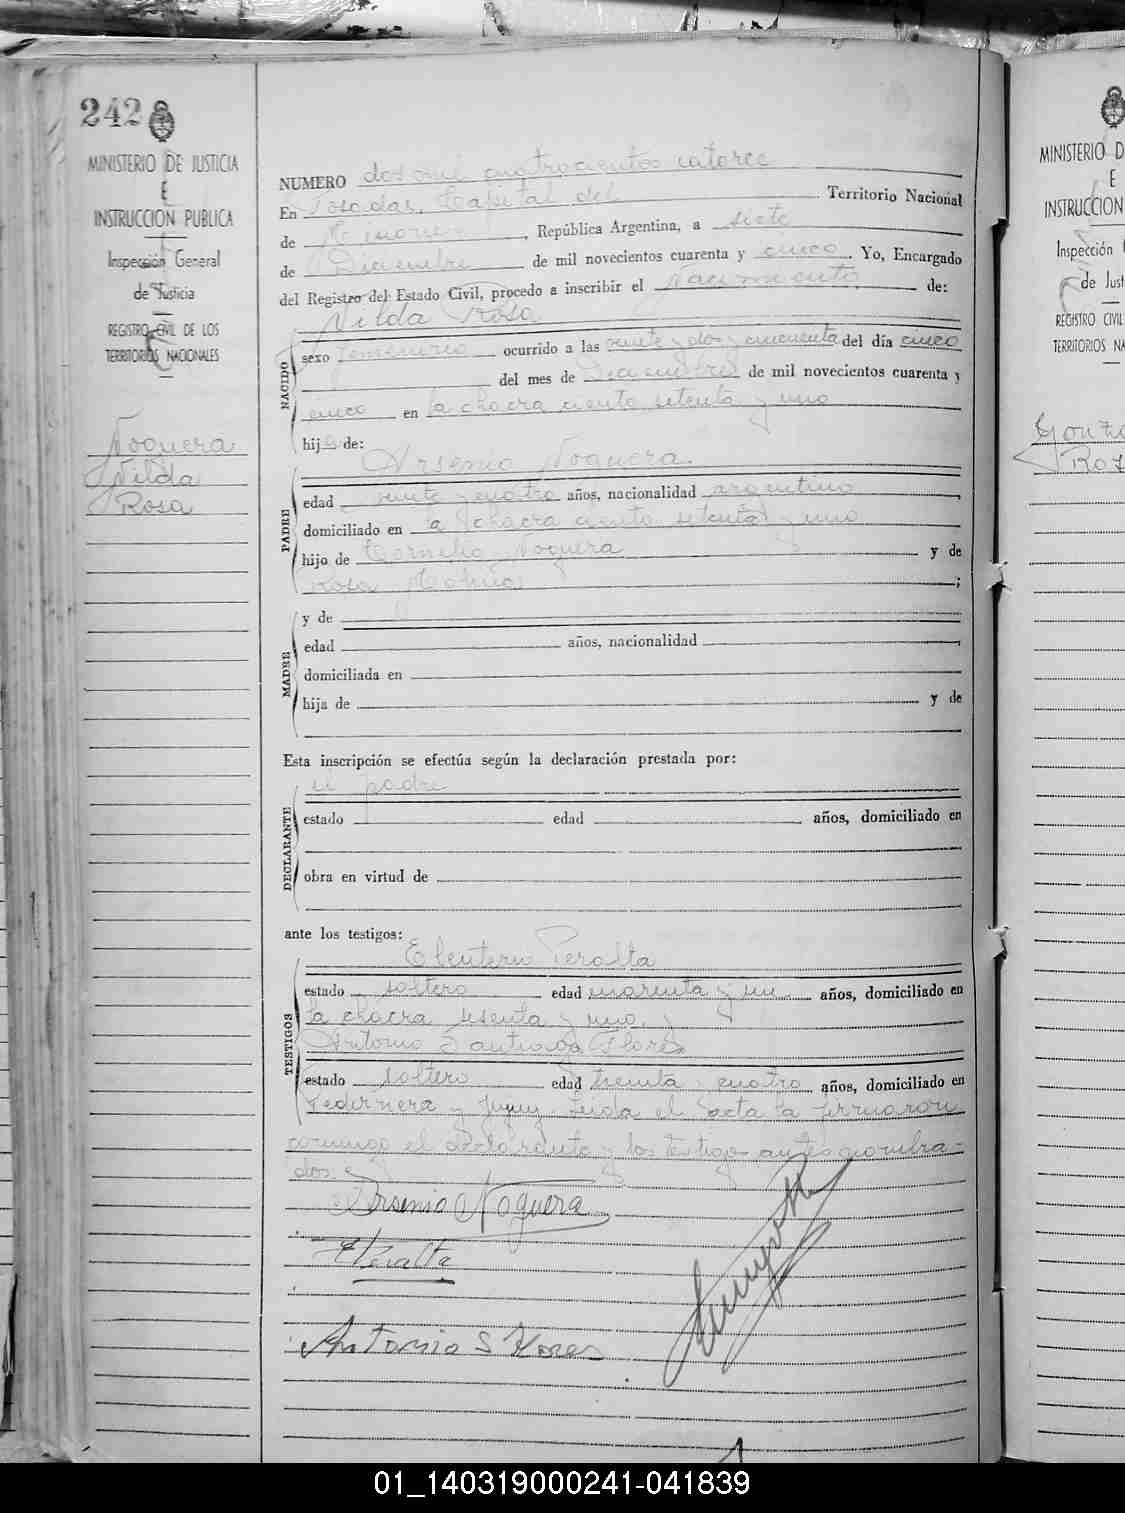 242
MINISTERIO DE JUSTICIA
E
INSTRUCCION PUBLICA
Inspección General
de Justicia
REGISTRO CIVIL DE LOS
TERRITORIOS NACIONALES
Noguera
Nilda
Rosa
NUMERO dos mil cuatrocientos catorce
En Posadas, Capital del Territorio Nacional
de Misiones, República Argentina, a siete
de Diciembre de mil novecientos cuarenta y cinco. Yo, Encargado
del Registro del Estado Civil, procedo a inscribir el Nacimiento de:
Nilda Rosa
NACIDO
sexo femenino ocurrido a las veinte y dos y cincuenta del día cinco
del mes de Diciembre de mil novecientos cuarenta y
cinco en la chacra ciento setenta y uno
hija de:
Arsenio Noguera
PADRE
edad veinte y cuatro años, nacionalidad argentino,
domiciliado en la chacra ciento setenta y uno
hijo de Cornelio Noguera y de
Rosa;
MADRE
y de
edad años, nacionalidad,
domiciliada en
hija de y de
Esta inscripción se efectúa según la declaración prestada por:
el padre
DECLARANTE
estado edad años, domiciliado en
obra en virtud de
ante los testigos:
Eleuterio Peralta
TESTIGOS
estado soltero edad cuarenta y un años, domiciliado en
la chacra sesenta y uno, y
Antonio Santiago Flores
estado soltero edad treinta y cuatro años, domiciliado en
Pedernera y Jujuy. Leida el acta la firmaron
conmigo el declarante y los testigos antes nombra-
dos.
Arsenio Noguera
E Peralta
Antonio S Flores
MINISTERIO D
E
INSTRUCCION
Inspección
de Just
REGISTRO CIVIL
TERRITORIOS NA
Gonza
Ros
01_140319000241-041839